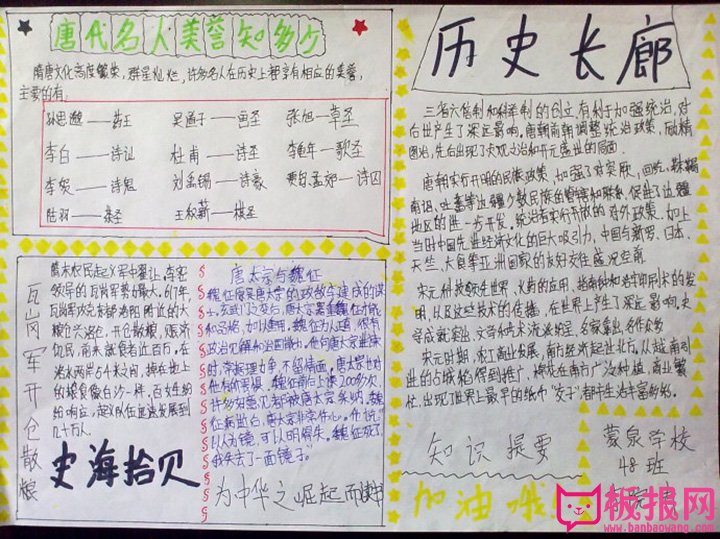 唐代名人美誉知多少
隋唐文化高度繁荣，群星灿烂，许多名人在历史上都享有相应的美誉，
主要的有：
孙思邈——药王 吴道子——画圣 张旭——草圣
李白——诗仙 杜甫——诗圣 李龟年——歌圣
李贺——诗鬼 刘禹锡——诗豪 贾岛孟郊——诗囚
陆羽——茶圣 王积薪——棋圣
瓦岗军开仓散粮
隋末农民起义军中翟让、李密
领导的瓦岗军势力最大。617年
瓦岗军攻克东都洛阳附近的大
粮仓兴洛仓，开仓散粮，赈济
饥民，前来就食者近百万。在
洛水两岸
的粮食像白沙一样，百姓纷
纷响应，起义队伍迅速发展到
几十万人。
史海拾贝
唐太宗与魏征
魏征
时，常据理力争，不留情面。唐太宗也对
魏征前后上谏200多次，
征病逝后，唐太宗非常伤心，
以人为镜，可以明得失，魏征死了，
我失去了一面镜子。
为中华之崛起而读书
历史长廊
三省六部制和科举制的创立，有利于加强统治，对
后世产生了深远影响。唐朝前期调整统治政策，励精
图治，先后出现了贞观之治和开元盛世的局面
唐朝实行开明的民族政策，加强了对突厥，回纥，靺鞨
南诏，吐蕃等边疆少数民族的管辖和联系，促进了边疆
地区的进一步开发。统治者实行开放的对外政策，加上
当时中国先进经济文化的巨大吸引力，中国与新罗、日本、
天竺、大食等亚洲国家的友好交往盛况空前
宋元科技领先世界，火药的应用，指南针和活字印刷术的发
明，以及这些技术的传播，在世界上产生了深远影响。史
学成就突出，文学艺术流派纷呈，名家辈出，名作众多
宋元时期，农工商业发展，南方经济超过北方。从越南引
进的占城稻得到推广，棉花在南方广泛种植，商业繁
忙，出现了世界上最早的纸币“交子”都市生活丰富多彩。
知识提要
蒙泉学校
48班
加油哦
板报网
www.banbaowang.com